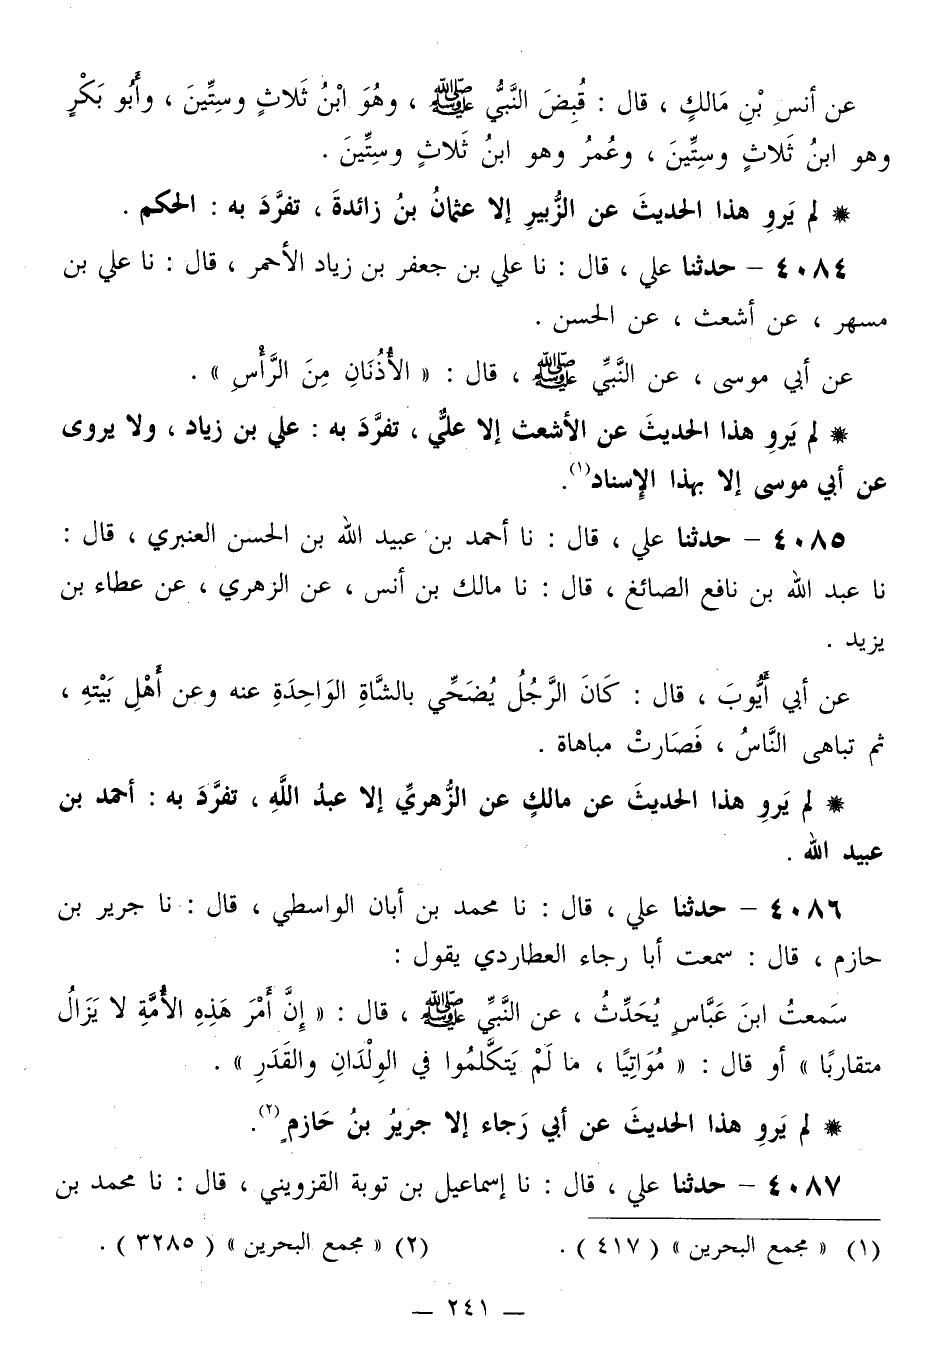 عن أنسِ بْنِ مَالكٍ ، قال : قُبِضَ النَّبيُّ ﷺ ، وهُوَ ابْنُ ثَلاثٍ وسِتِّينَ ، وأَبُو بَكْرٍ
وهو ابنُ ثَلاثٍ وسِتِّينَ ، وعُمرُ وهو ابنُ ثَلاثٍ وسِتِّينَ .
* لم يَروِ هذا الحديثَ عن الزُّبيرِ إلا عثمانُ بنُ زائدةَ ، تفرَّدَ به : الحكم .
٤٠٨٤ – حدثنا علي ، قال : نا علي بن جعفر بن زياد الأحمر ، قال : نا علي بن
مسهر ، عن أشعث ، عن الحسن .
عن أبي موسى ، عن النَّبيِّ ﷺ ، قال : « الأُذُنَانِ مِنَ الرَّأْسِ » .
* لم يَروِ هذا الحديثَ عن الأشعث إلا عليٌّ ، تفرَّدَ به : علي بن زياد ، ولا يروى
عن أبي موسى إلا بهذا الإسناد(١).
٤٠٨٥ – حدثنا علي ، قال : نا أحمد بن عبيد الله بن الحسن العنبري ، قال :
نا عبد الله بن نافع الصائغ ، قال : نا مالك بن أنس ، عن الزهري ، عن عطاء بن
يزيد .
عن أبي أَيُّوبَ ، قال : كَانَ الرَّجُلُ يُضَحِّي بالشَّاةِ الوَاحِدَةِ عنه وعن أَهْلِ بَيْتهِ ،
ثم تباهى النَّاسُ ، فَصَارتْ مباهاة .
* لم يَروِ هذا الحديثَ عن مالكٍ عن الزُّهريِّ إلا عبدُ اللَّهِ ، تفرَّدَ به : أحمد بن
عبيد الله .
٤٠٨٦ – حدثنا علي ، قال : نا محمد بن أبان الواسطي ، قال : نا جرير بن
حازم ، قال : سمعت أبا رجاء العطاردي يقول :
سَمعتُ ابنَ عَبَّاسٍ يُحَدِّثُ ، عن النَّبيِّ ﷺ ، قال : « إِنَّ أَمْرَ هَذِهِ الأُمَّةِ لا يَزَالُ
متقاربًا » أو قال : « مُوَاتِيًا ، ما لَمْ يَتكَّلمُوا في الوِلْدَانِ والقَدَرِ » .
* لم يَروِ هذا الحديثَ عن أبي رَجاء إلا جريرُ بنُ حَازمٍ(٢).
٤٠٨٧ – حدثنا علي ، قال : نا إسماعيل بن توبة القزويني ، قال : نا محمد بن
(١) « مجمع البحرين » ( ٤١٧ ) . (٢) « مجمع البحرين » ( ٣٢٨٥ ) .
– ٢٤١ –